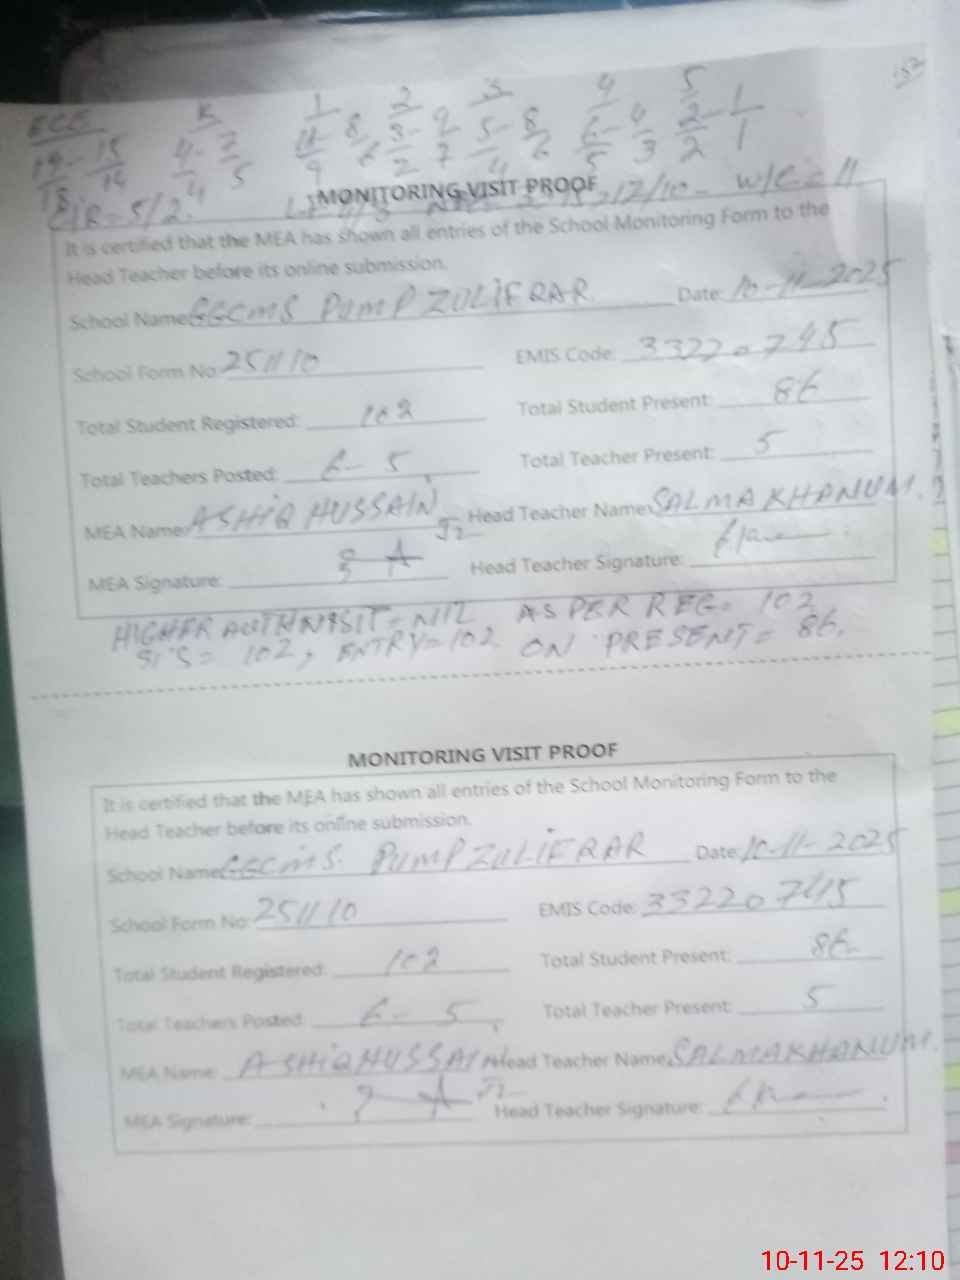 ECE K 1 2 3 4 5
MONITORING VISIT PROOF
It is certified that the MEA has shown all entries of the School Monitoring Form to the
Head Teacher before its online submission.
School Name: GGCMS PUMP ZULIFRAR Date: 10-11-2025
School Form No: 251110 EMIS Code: 33220745
Total Student Registered: 102 Total Student Present: 86
Total Teachers Posted: 6- 5 Total Teacher Present: 5
MEA Name: ASHIQ HUSSAIN Head Teacher Name: SALMA KHANUM
MEA Signature: Head Teacher Signature:
HIGHER AUTH VISIT = NIL AS PER REG = 102
SIS = 102, ENTRY = 102 ON PRESENT = 86.
MONITORING VISIT PROOF
It is certified that the MEA has shown all entries of the School Monitoring Form to the
Head Teacher before its online submission.
School Name: GGCMS. PUMP ZULIFRAR Date: 10-11-2025
School Form No: 251110 EMIS Code: 33220745
Total Student Registered: 102 Total Student Present: 86
Total Teachers Posted: 6- 5 Total Teacher Present: 5
MEA Name: ASHIQ HUSSAIN Head Teacher Name: SALMA KHANUM.
MEA Signature: Head Teacher Signature:
10-11-25 12:10